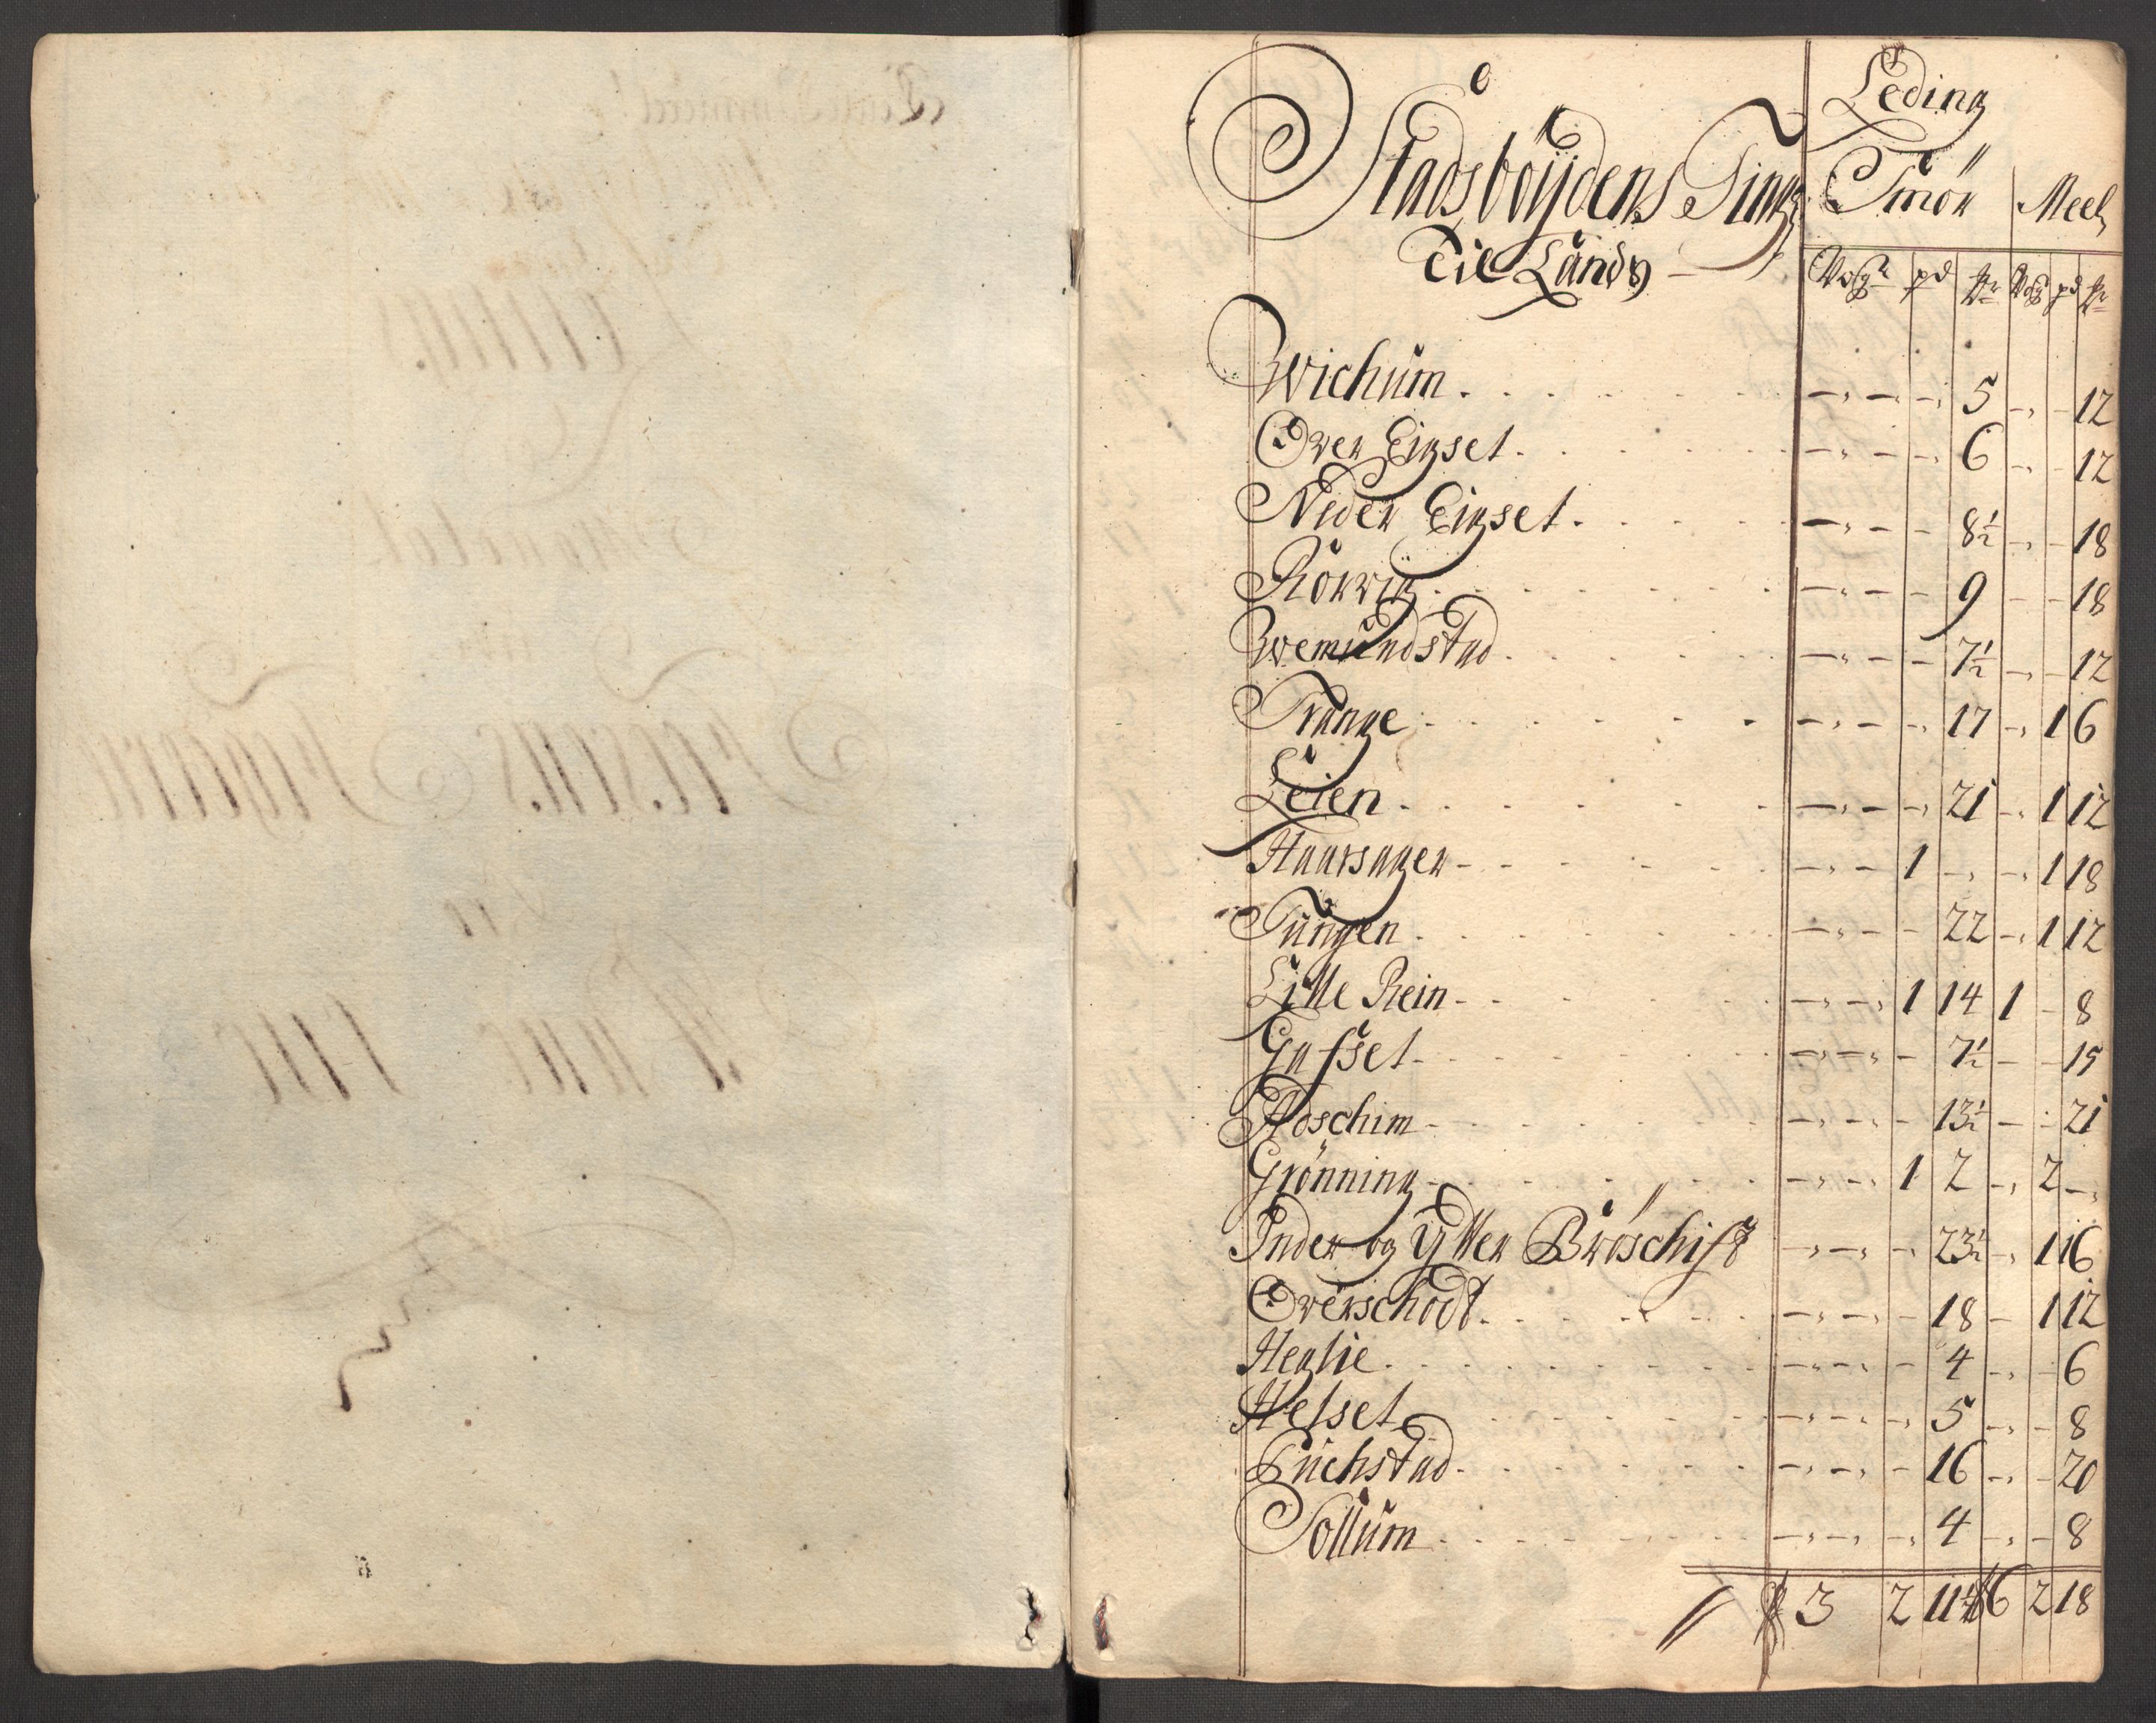 Leding
Stadsböÿdens Ting
Til Lands
Smör Meel
Wog pd Mr Wog pd Mr
Wichüm 5 12
Ower Eigset 6 12
Neder Eigset 8½ 18
Rörwig 9 18
Wemündstad 7½ 12
Trange 17 1 6
Leien 21 1 12
Haarsager 1 1 18
Tüngen 22 1 12
Lille Rein 1 14 1 8
Gafset 7½ 15
Aoschim 13½ 21
Grönning 1 2 2
Inder og Ytter Bröschift 23½ 1 16
Owerschodt 18 1 12
Heglie 4 6
Helset 5 8
Füchstad 16 20
Sollüm 4 8
3 2 11½ 6 2 18